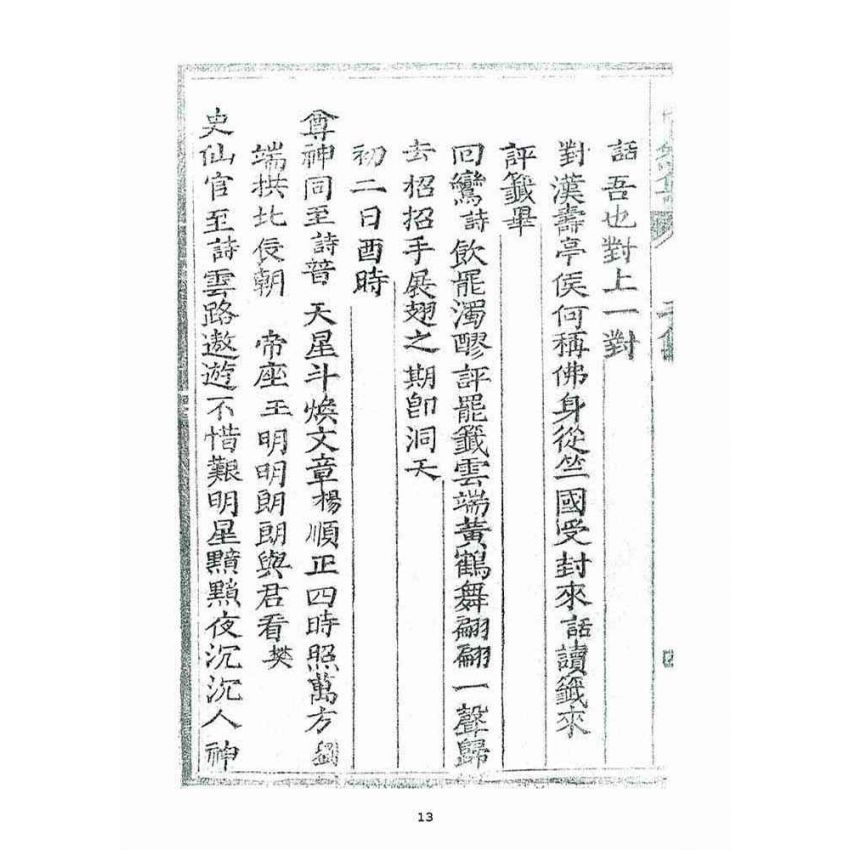 話吾也對上一對
對漢壽亭侯何稱佛身從竺國受封來話讀籤來
評籤畢
回鸞詩飲罷濁醪評罷籤雲端黃鶴舞翩翩一聲歸
去招招手展翅之期卽洞天
初二日酉時
尊神同至詩普天星斗煥文章楊順正四時照萬方劉
端拱北辰朝帝座王明明朗朗與君看樊
史仙官至詩雲路遨遊不惜艱明星點點夜沉沉人神
13